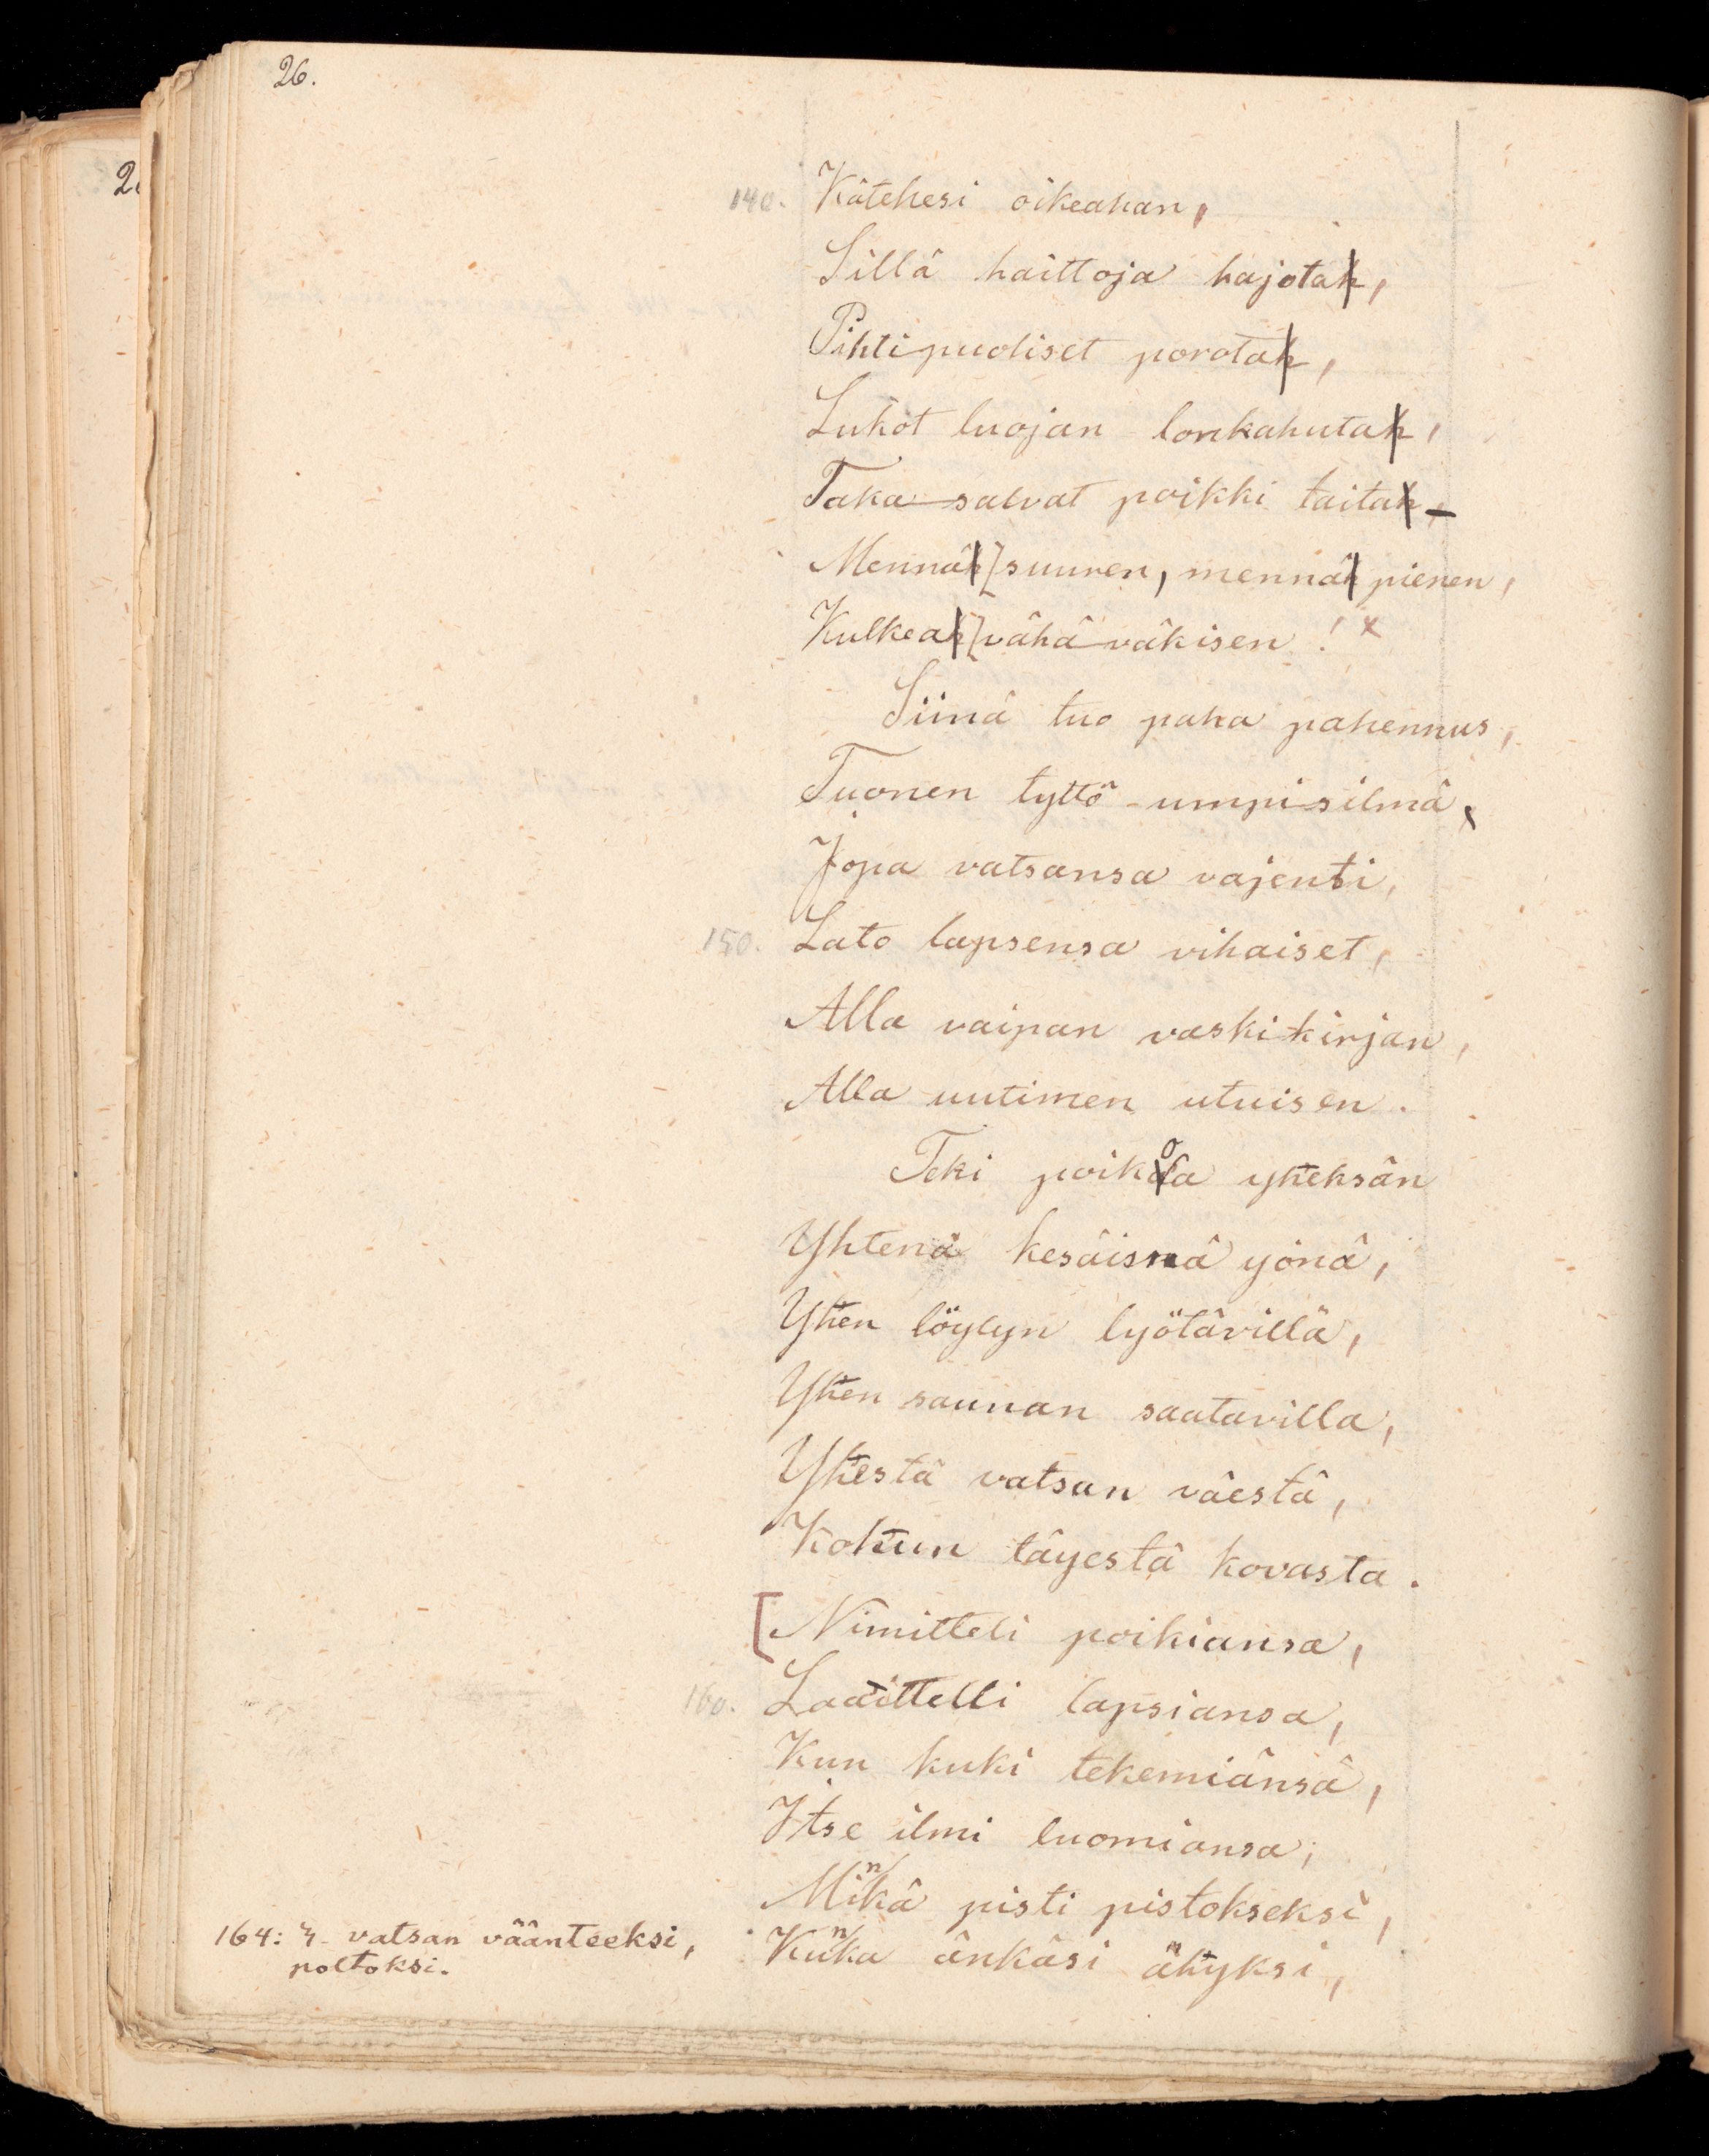 26.
2
140. Kätehesi oikeahan,
Sillä haittoja hajotah,
Pihtipuoliset porotah,
Lukot luojan lonkahutah,
Taka-salvat poikki taitah,-
Mennäh[suuren, mennäh pienen,
Kulkeah[vähä-väkisen! x
Siinä tuo paha pahennus,
Tuonen tyttö umpi-silmä,
Jopa vatsansa vajenti,
150. Lato lapsensa vihaiset,
Alla vaipan vaski-kirjan,
Alla uutimen utuisen.
Teki poikoa yheksän
Yhtenä kesäisnä yönä,
Yhen löylyn lyötävillä,
Yhen saunan saatavilla,
Yhestä vatsan väestä,
Kohun täyestä kovasta.
[Nimitteli poikiansa,
160. Laaitteli lapsiansa,
Kun kuki tekemiänsä,
Itse ilmi luomiansa;
Minkä pisti pistokseksi,
Kunka änkäsi ähyksi,
164: 4- vatsan väänteeksi,
poltoksi.